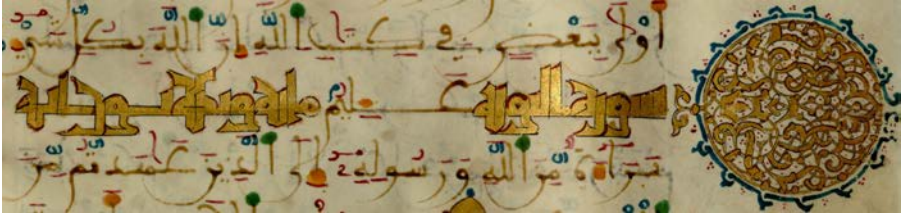 أولى ببعض في كتب الله إن الله بكل شيء
سورة التوبة عليم مائة وثلاثون آية
براءة من الله ورسوله إلى الذين عهدتم من